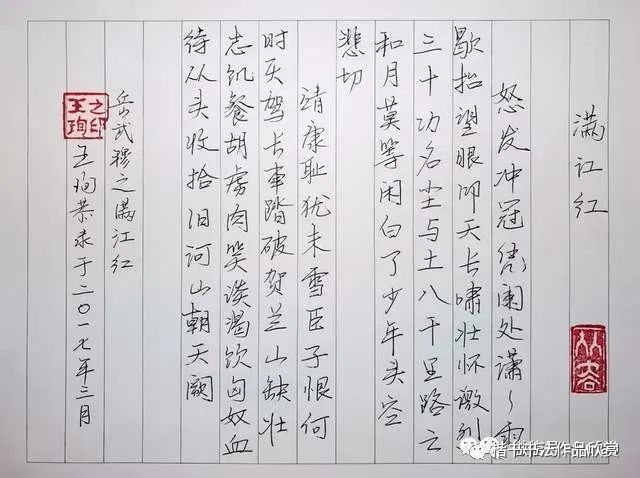 满江红
怒发冲冠凭阑处潇〻雨
歇抬望眼仰天长啸壮怀激烈
三十功名尘与土八千里路云
和月莫等闲白了少年头空
悲切
靖康耻犹未雪臣子恨何
时灭驾长车踏破贺兰山缺壮
志饥餐胡虏肉笑谈渴饮匈奴血
待从头收拾旧河山朝天阙
岳武穆之满江红
王珣恭录于二〇一七年三月
王珣之印
楷书书法作品欣赏